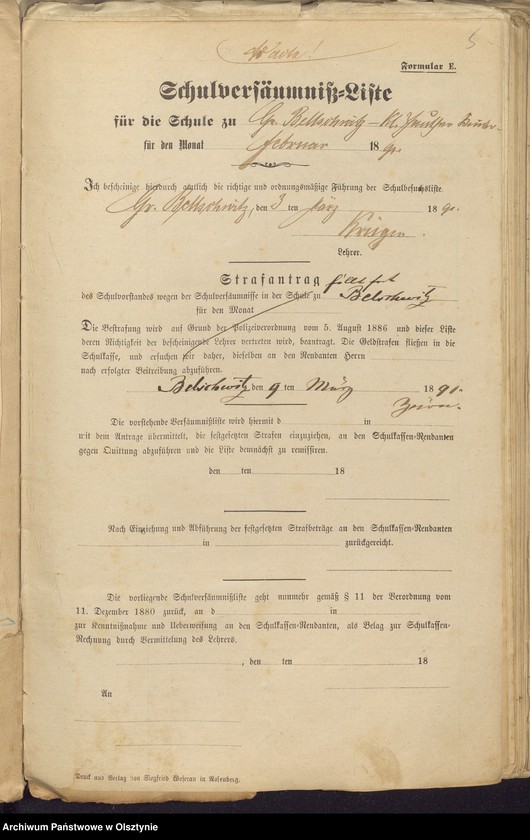 5
Formular E.
Schulversäumniß-Liste
für die Schule zu Gr. Bellschwitz - Kl.
für den Monat Februar 1890.
Ich bescheinige hierdurch amtlich die richtige und ordnungsmäßige Führung der Schulbesuchsliste.
Gr. Bellschwitz, den 3 ten März 1890.
Krüger.
Lehrer.
Strafantrag fällt fort
des Schulvorstandes wegen der Schulversäumnisse in der Schule zu Belschwitz
für den Monat
Die Bestrafung wird auf Grund der Polizeiverordnung vom 5. August 1886 und dieser Liste
deren Richtigkeit der bescheinigende Lehrer vertreten wird, beantragt. Die Geldstrafen fließen in die
Schulkasse, und ersuchen wir daher, dieselben an den Rendanten Herrn
nach erfolgter Beitreibung abzuführen.
Belschwitz den 9 ten März 1890.
Die vorstehende Versäumnißliste wird hiermit d in
mit dem Antrage übermittelt, die festgesetzten Strafen einzuziehen, an den Schulkassen-Rendanten
gegen Quittung abzuführen und die Liste demnächst zu remittiren.
den ten 18
Nach Einziehung und Abführung der festgesetzten Strafbeträge an den Schulkassen-Rendanten
in zurückgereicht.
Die vorliegende Schulversäumnißliste geht nunmehr gemäß § 11 der Verordnung vom
11. Dezember 1880 zurück, an d in
zur Kenntnißnahme und Ueberweisung an den Schulkassen-Rendanten, als Belag zur Schulkassen-
Rechnung durch Vermittelung des Lehrers.
, den ten 18
An
Druck und Verlag von Siegfried Weseran in Rosenberg.
Archiwum Państwowe w Olsztynie